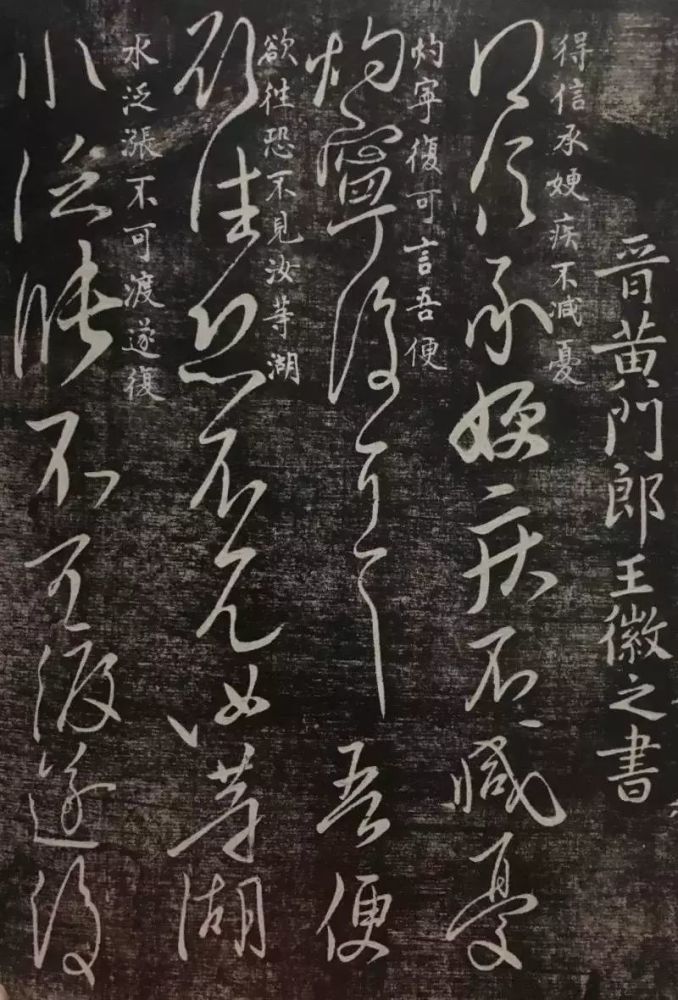 晉黄門郎王徽之書
得信承嫂疾不減憂
得信承嫂疾不減憂
灼寧復可言吾便
灼寧復可言吾便
欲往恐不見汝等湖
欲往恐不見汝等湖
水泛漲不可渡遂復
水泛漲不可渡遂復